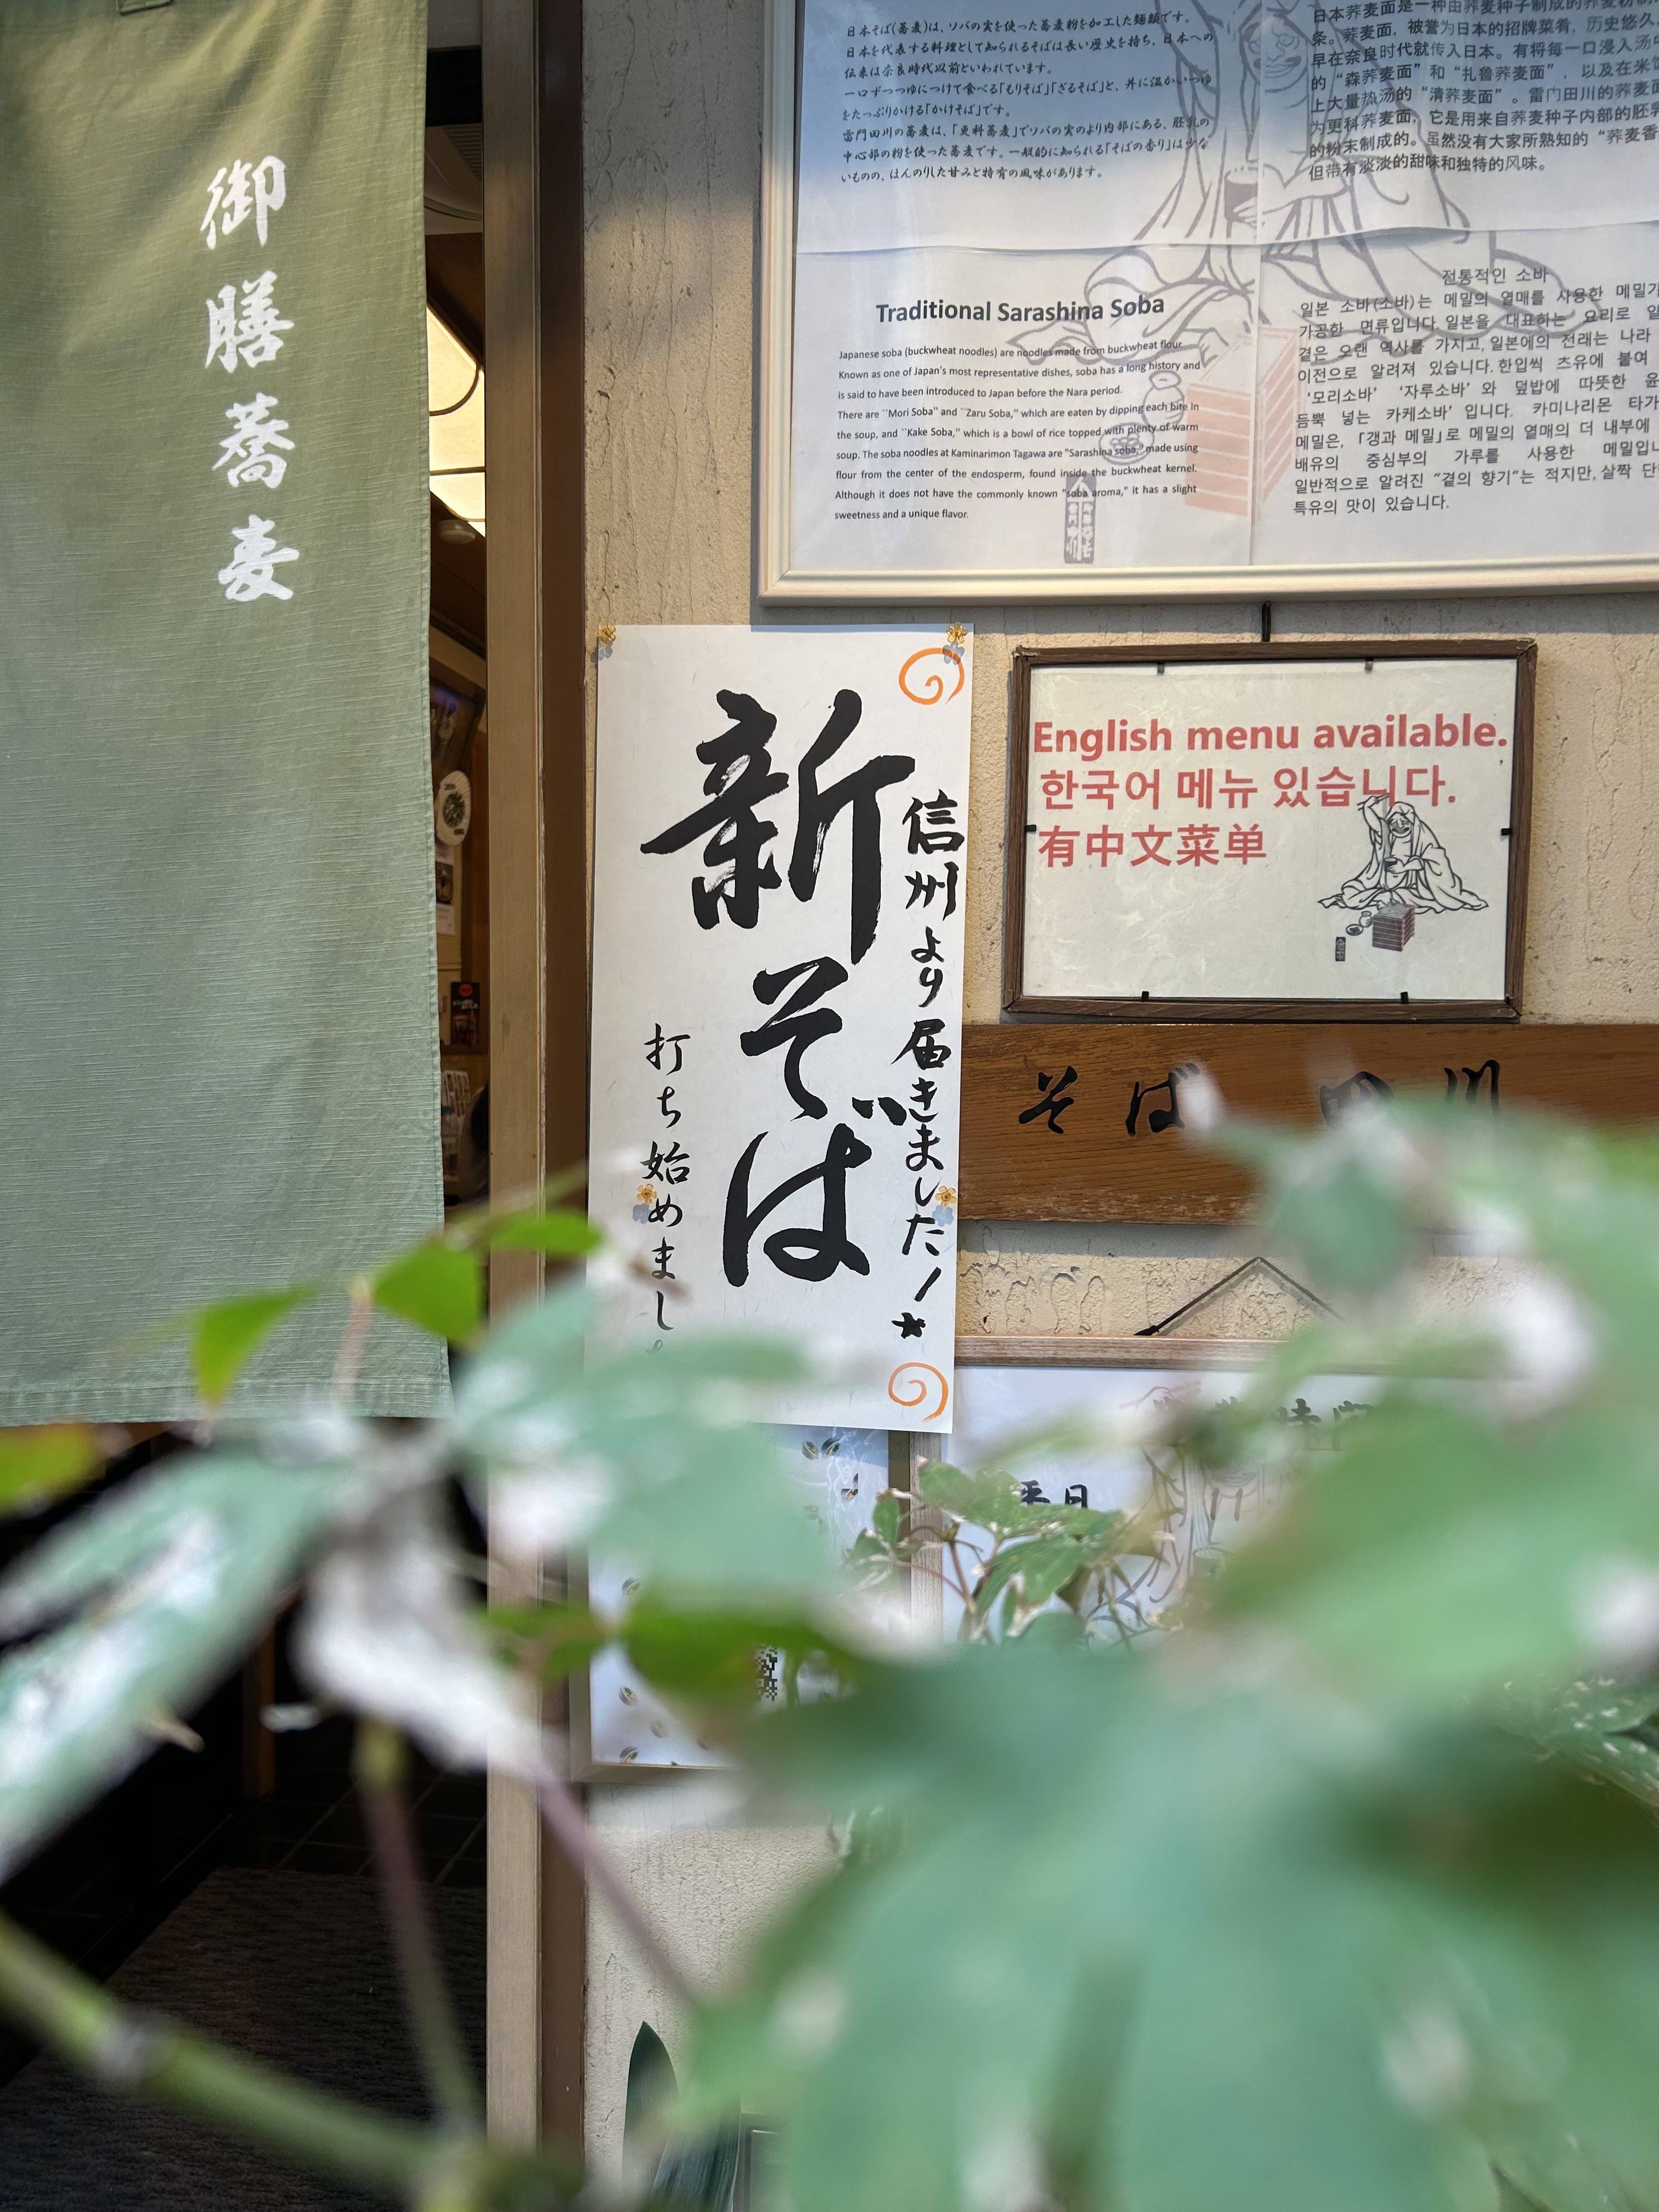 御膳蕎麦
日本そば(蕎麦)は、ソバの実を使った蕎麦粉を加工した麺類です。
日本を代表する料理として知られるそばは長い歴史を持ち、日本への
伝来は奈良時代以前といわれています。
一口ずつつゆにつけて食べる「もりそば」「ざるそば」と、丼に温かいつゆ
をたっぷりかける「かけそば」です。
雷門田川の蕎麦は、「更科蕎麦」でソバの実のより内部にある、胚乳の
中心部の粉を使った蕎麦です。一般的に知られる「そばの香り」は少な
いものの、ほんのりした甘みと特有の風味があります。
日本荞麦面是一种由荞麦种子制成的荞麦粉制
条。荞麦面，被誉为日本的招牌菜肴，历史悠久
早在奈良时代就传入日本。有将每一口浸入汤
的“森荞麦面”和“扎鲁荞麦面”，以及在米饭
上大量热汤的“清荞麦面”。雷门田川的荞麦面
为更科荞麦面，它是用来自荞麦种子内部的胚乳
的粉末制成的。虽然没有大家所熟知的“荞麦香
但带有淡淡的甜味和独特的风味。
Traditional Sarashina Soba
Japanese soba (buckwheat noodles) are noodles made from buckwheat flour.
Known as one of Japan's most representative dishes, soba has a long history and
is said to have been introduced to Japan before the Nara period.
There are ``Mori Soba'' and ``Zaru Soba,'' which are eaten by dipping each bite in
the soup, and ``Kake Soba,'' which is a bowl of rice topped with plenty of warm
soup. The soba noodles at Kaminarimon Tagawa are "Sarashina soba," made using
flour from the center of the endosperm, found inside the buckwheat kernel.
Although it does not have the commonly known "soba aroma," it has a slight
sweetness and a unique flavor.
전통적인 소바
일본 소바(소바)는 메밀의 열매를 사용한 메밀가
가공한 면류입니다.일본을 대표하는 요리로 알
곁은 오랜 역사를 가지고,일본에의 전래는 나라
이전으로 알려져 있습니다.한입씩 츠유에 붙여
‘모리소바’ ‘자루소바’와 덮밥에 따뜻한
듬뿍 넣는 카케소바’입니다. 카미나리몬 타가
메밀은, 「갱과 메밀」로 메밀의 열매의 더 내부에
배유의 중심부의 가루를 사용한 메밀입니
일반적으로 알려진 “곁의 향기”는 적지만, 살짝 단
특유의 맛이 있습니다.
English menu available.
한국어 메뉴 있습니다.
有中文菜单
信州より届きました!
新そば
打ち始めまし
そば 田川
平日